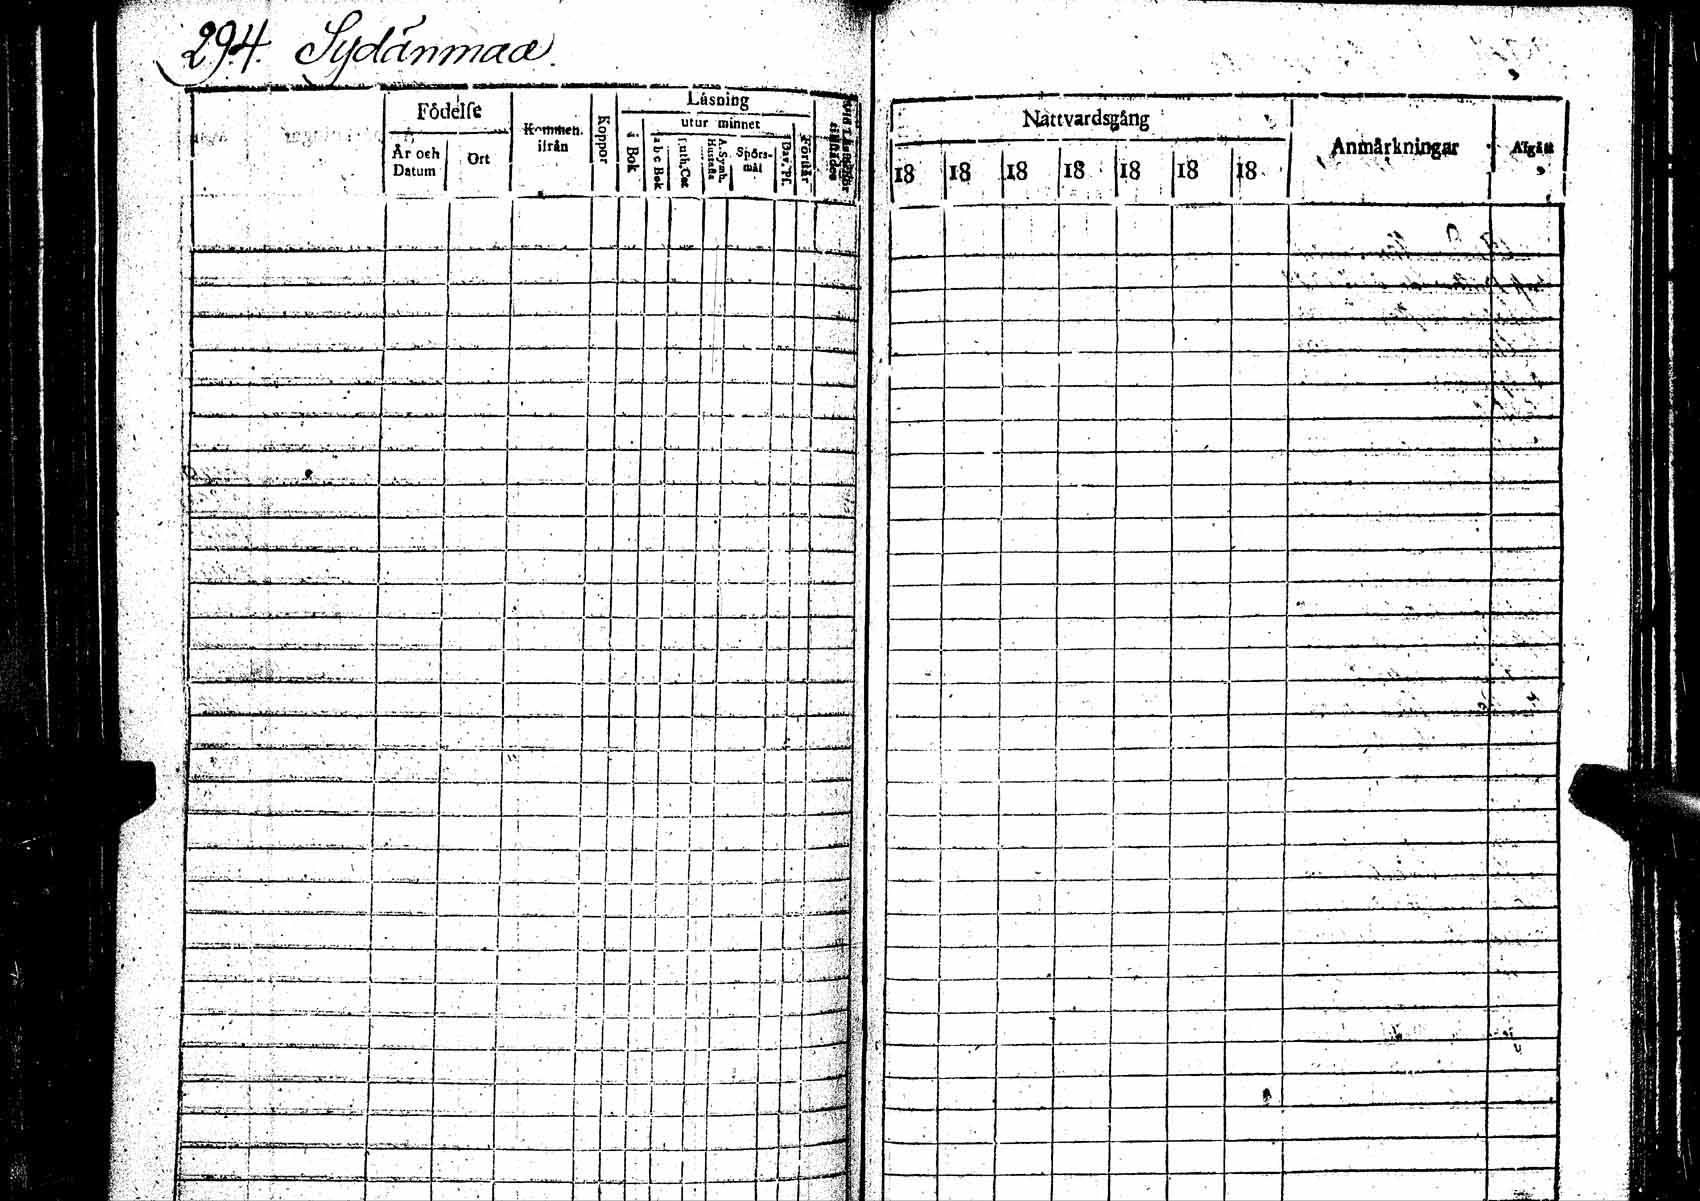 294. Sydänmaa.
Födelse
År och Datum
Ort
Kommen. ifrån
Koppor
Läsning
i Bok
utur minnet
a b c Bok
Luth. Cat.
A. Symb. Hustafla
Spörs-mål
Dav. Ps.
Förstår
Nattvardsgång
18 18 18 18 18 18 18
Anmärkningar
Afgått